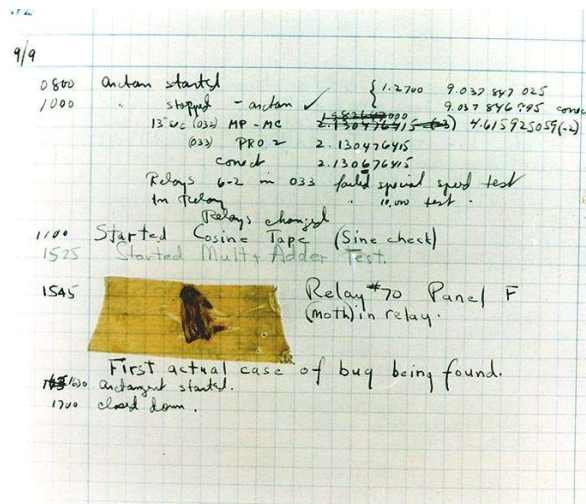 9/9
0800 Arctan started { 1.2700 9.037 847 025
1000 " stopped - arctan ✓ 9.037 846 995 conect
13" sec (032) MP - MC 2.130476415 (-3) 4.615925059(-2)
(033) PRO 2 2.130476415
conect 2.130676415
Relays 6-2 in 033 failed special speed test
In Relay " 10.000 test.
Relays changed
1100 Started Cosine Tape (Sine check)
1525 Started Mult + Adder Test.
1545 Relay #70 Panel F
(moth) in relay.
First actual case of bug being found.
1630 Arctangent started.
1700 closed down.